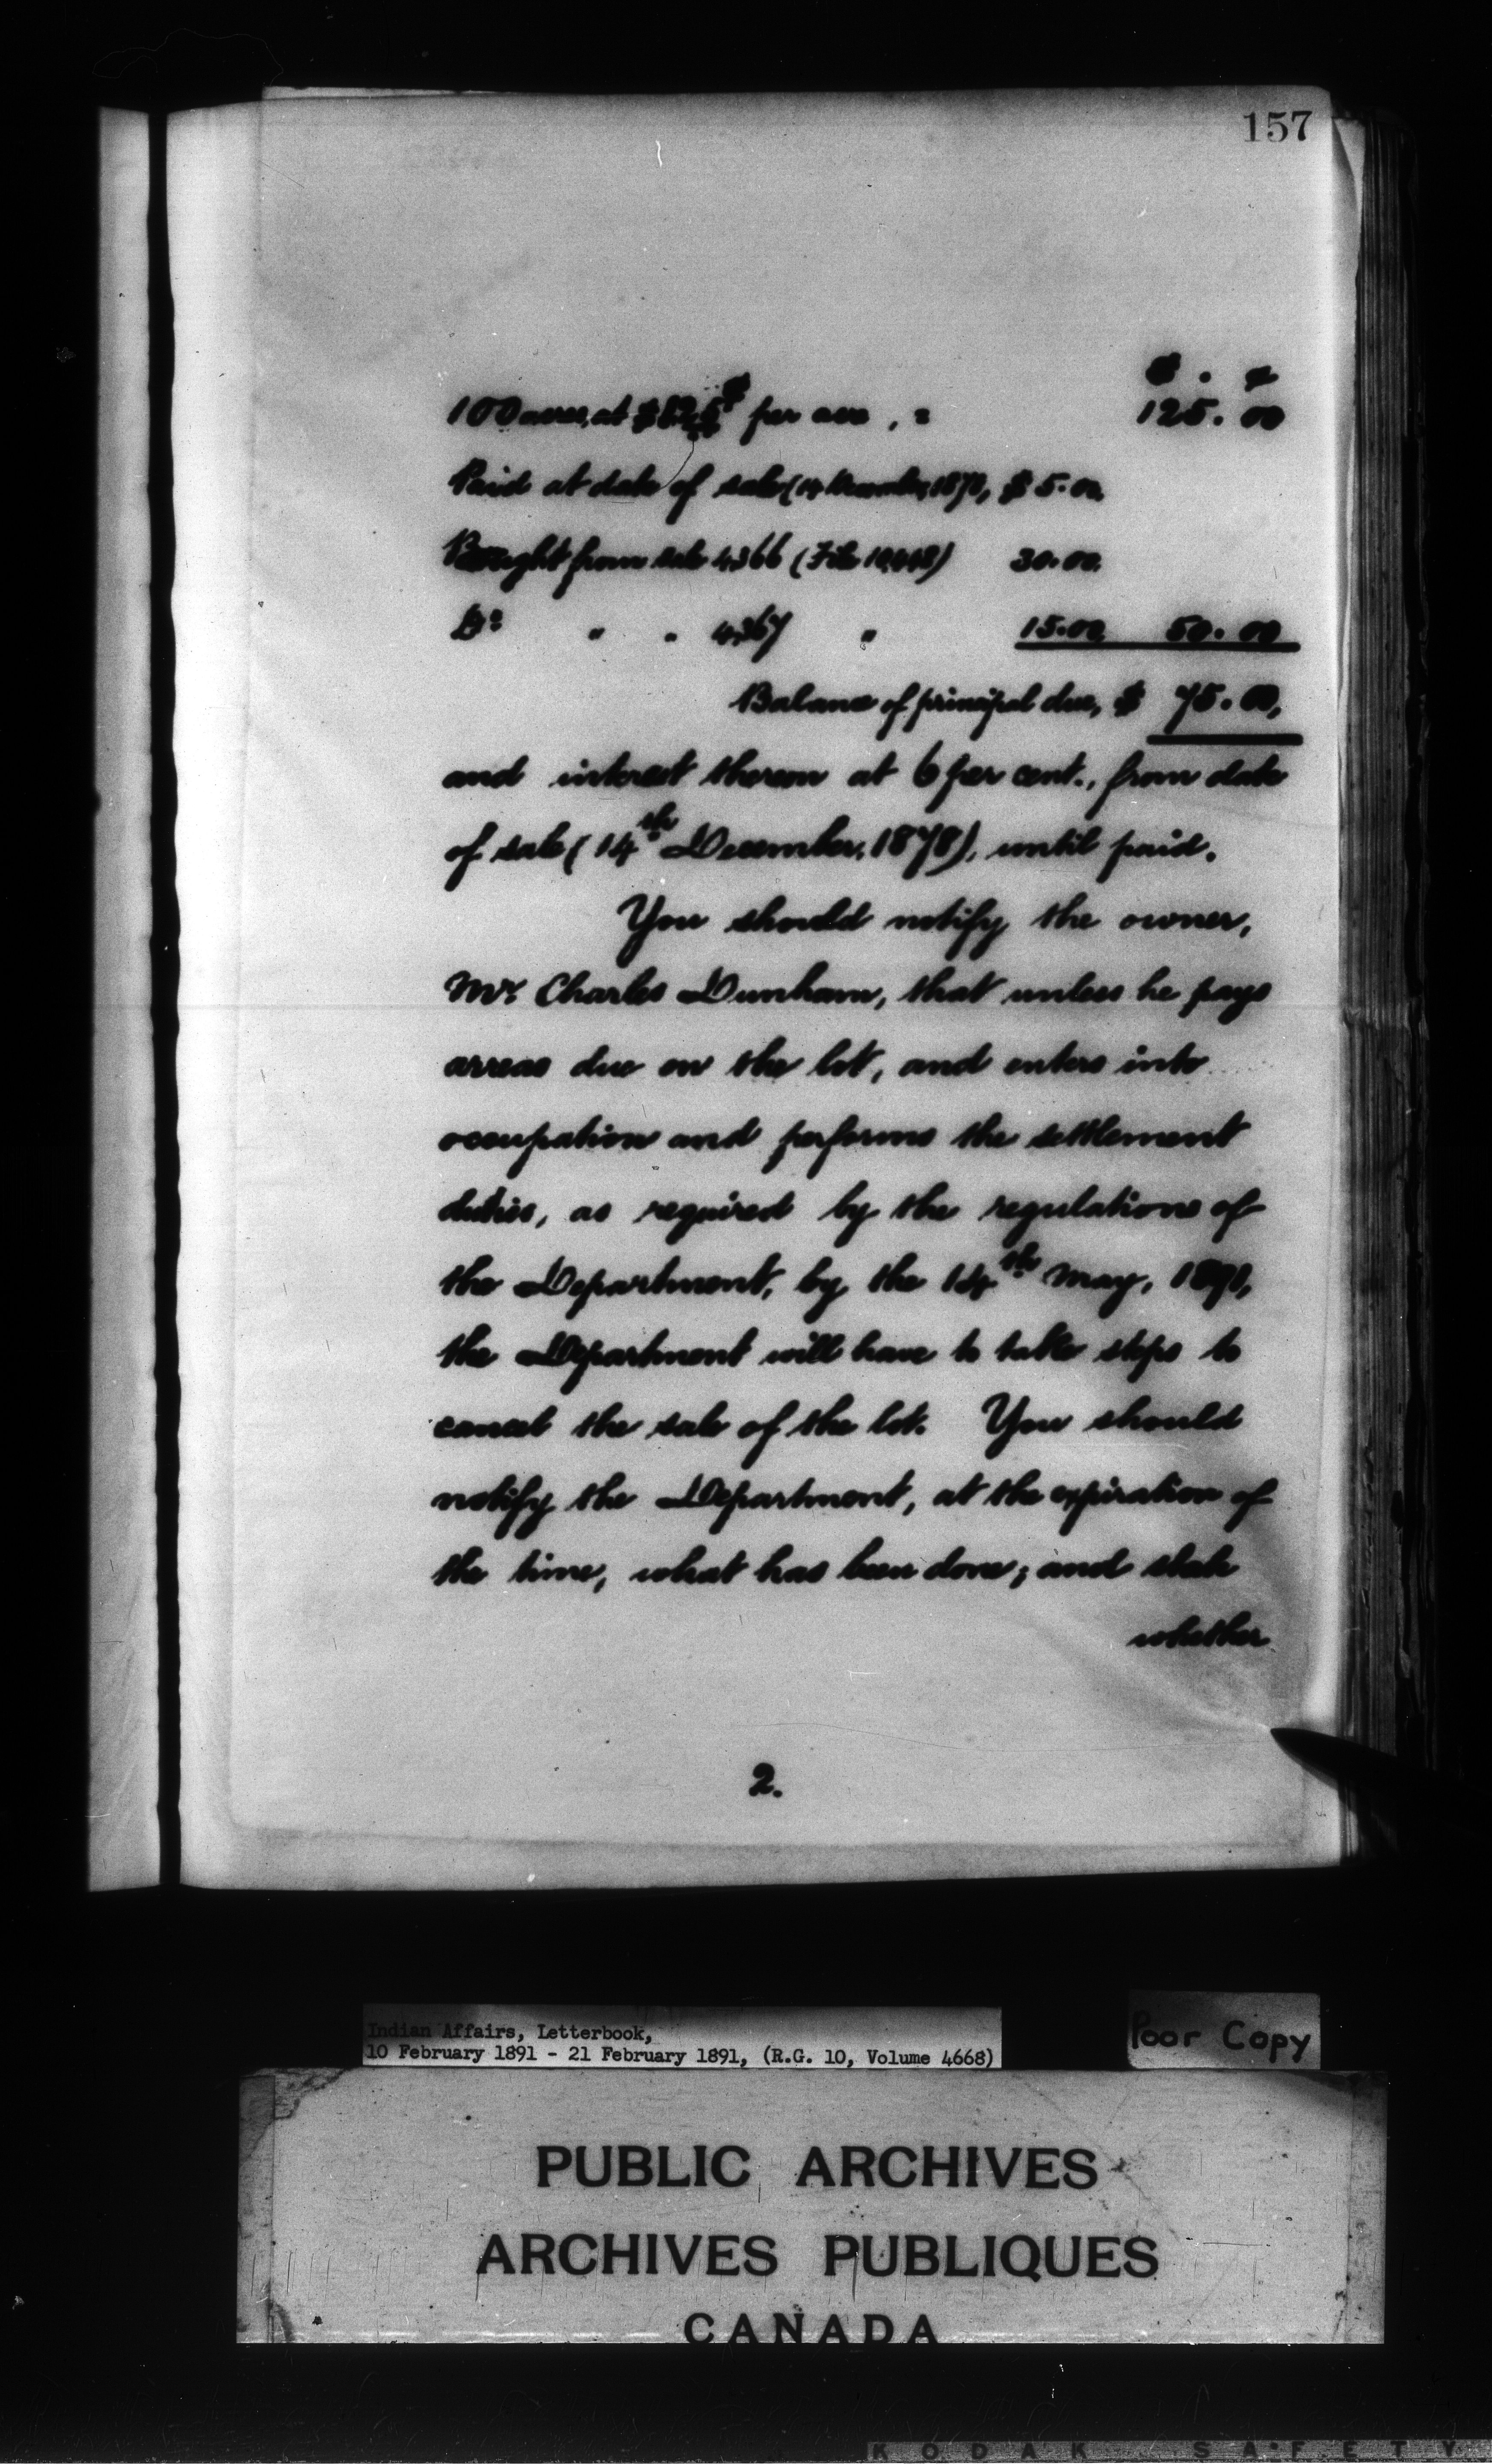 157
$ . ¢
100 acres, at $1.25 per acre, = 125.00
Paid at date of sale (14 December, 1878, $5.00,
Brought from sale 4366 (File 10,
30.00,
Do " " 4367 " 15.00 50.00
Balance of principal due, $ 75.00,
and interest thereon at 6 per cent., from date
of sale (14th December, 1878), until paid.
You should notify the owner,
Mr. Charles Dunham, that unless he pays
arreas due on the lot, and enters into
occupation and performs the settlement
duties, as required by the regulations of
the Department, by the 14th May, 1891,
the Department will have to take steps to
cancel the sale of the lot. You should
notify the Department, at the expiration of
the time, what has been done; and state
whether
2.
Indian Affairs, Letterbook,
10 February 1891 - 21 February 1891, (R.G. 10, Volume 4668)
Poor Copy
PUBLIC ARCHIVES
ARCHIVES PUBLIQUES
CANADA
KODAK SAFETY